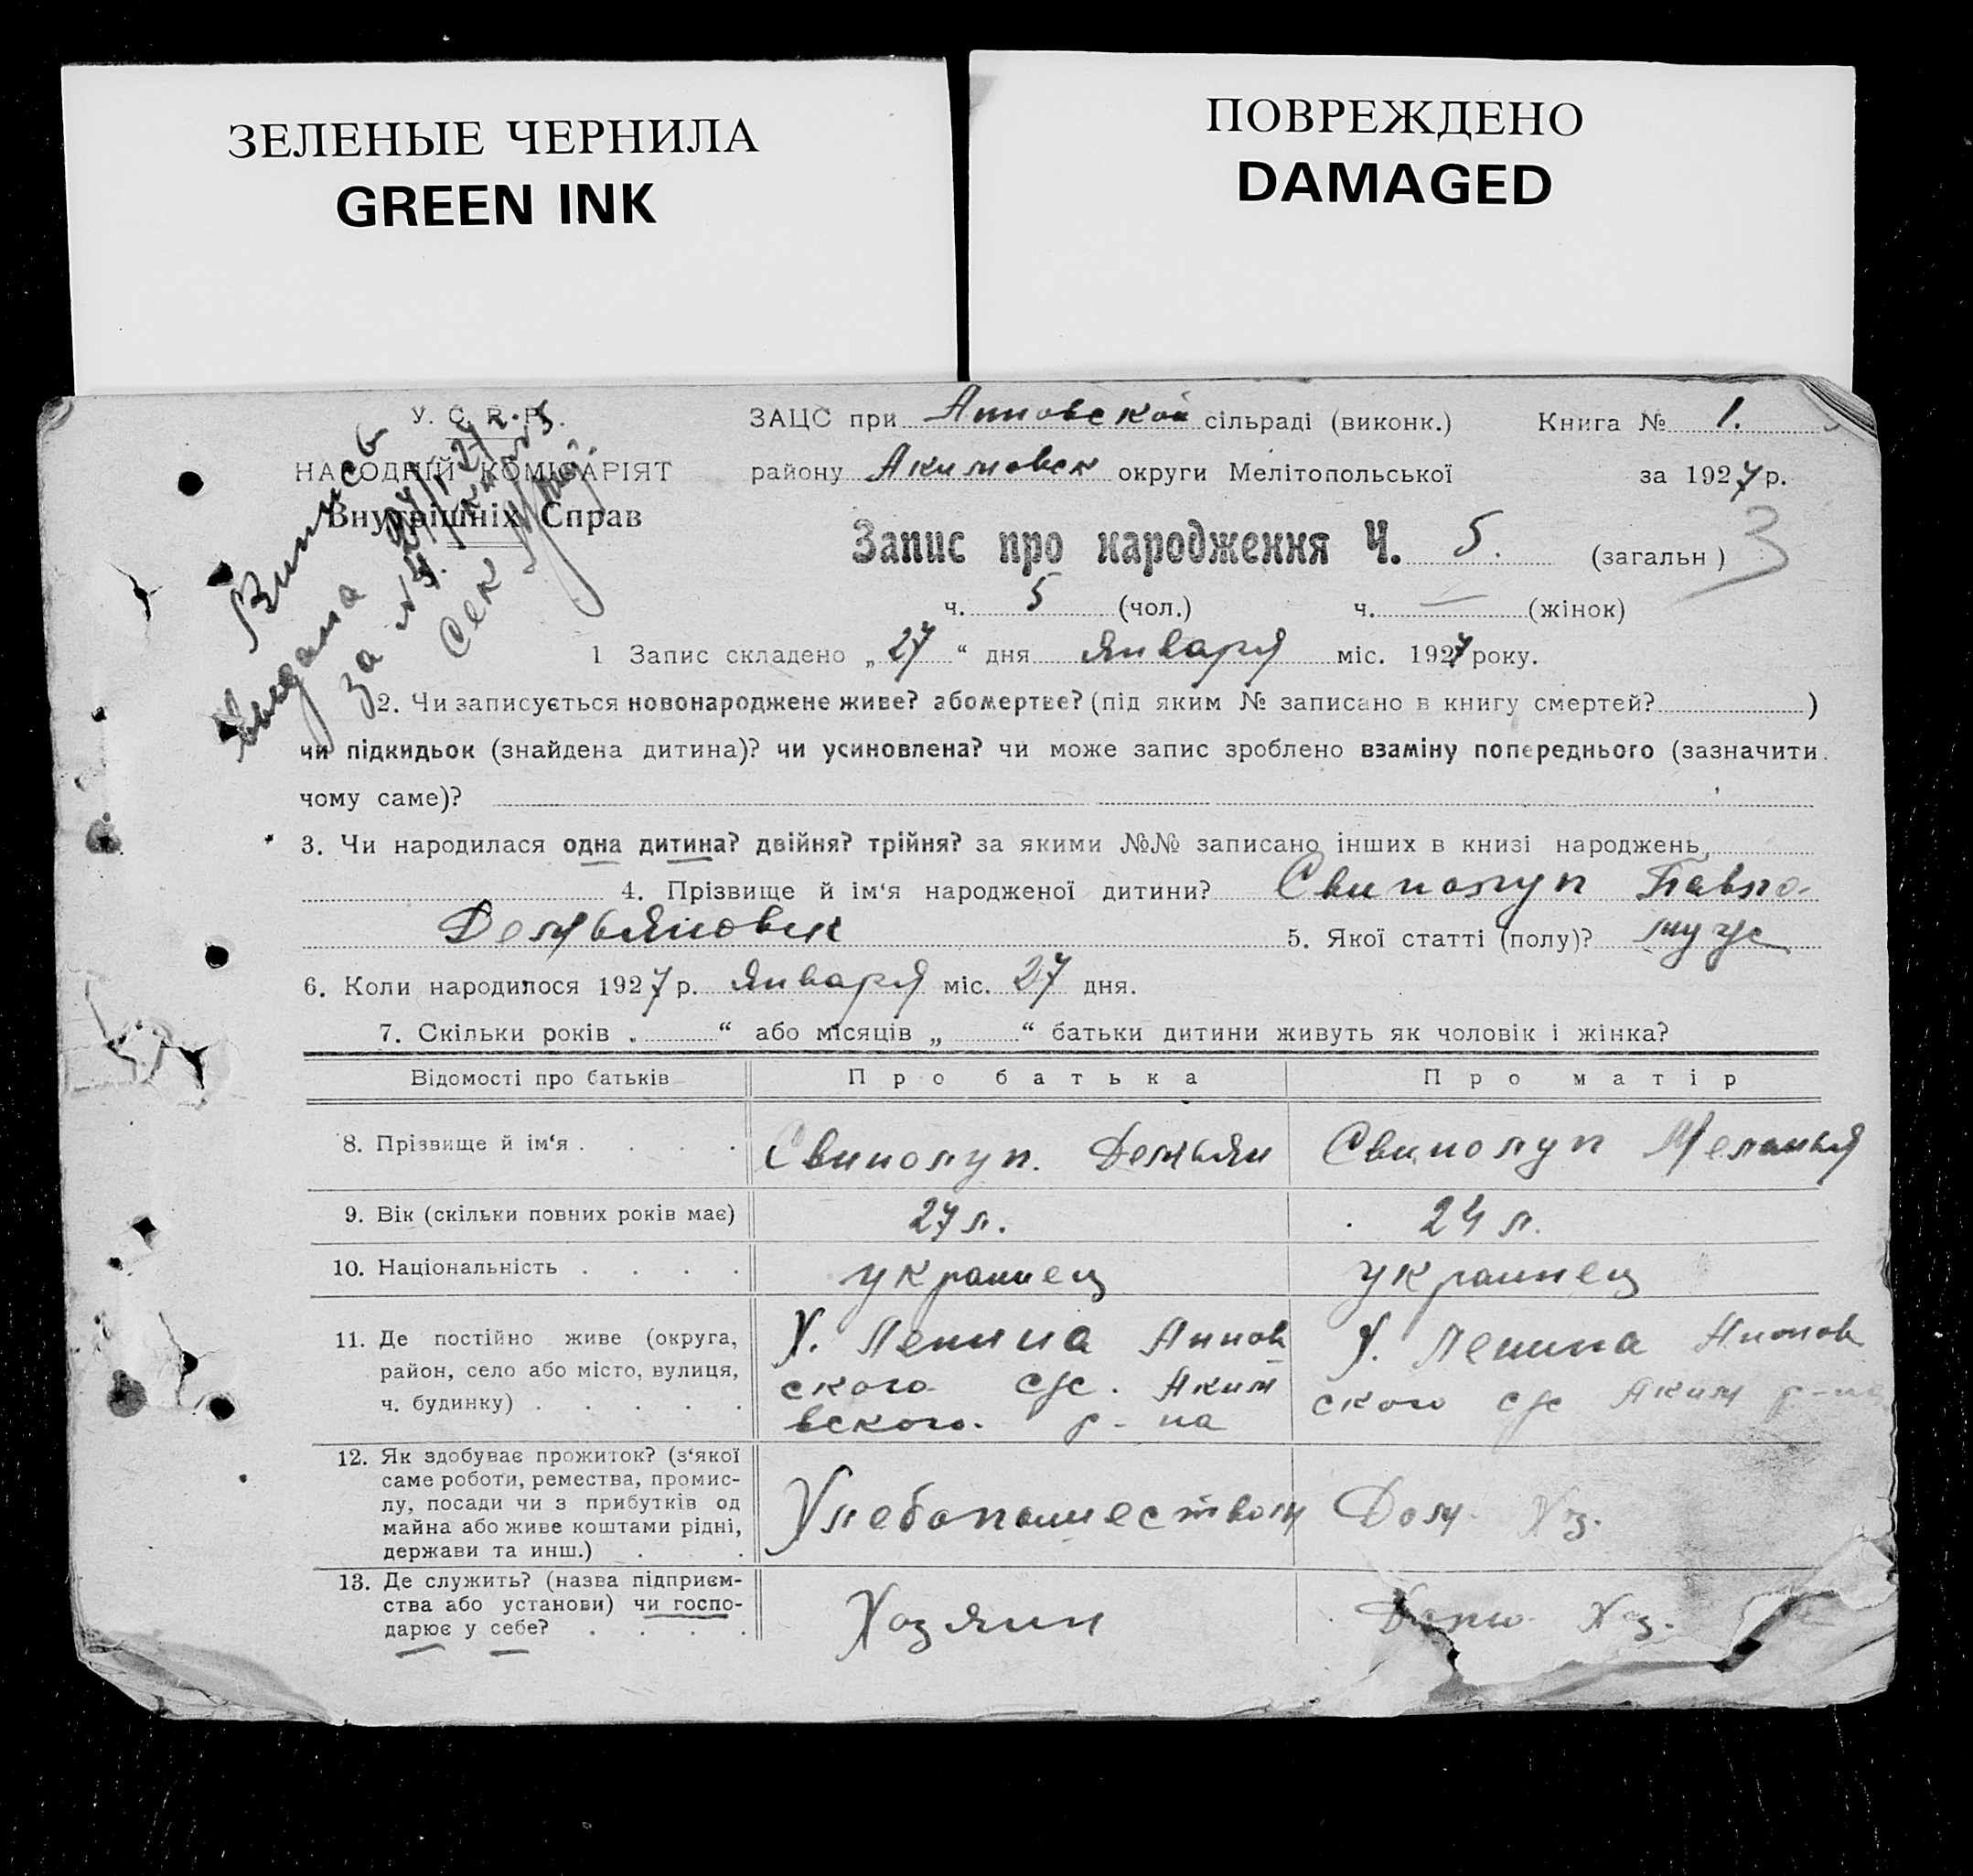 ЗЕЛЕНЫЕ ЧЕРНИЛА
GREEN INK
ПОВРЕЖДЕНО
DAMAGED
У. С. Р. Р.
НАРОДНІЙ КОМІСАРІЯТ
Внутрішніх Справ
Выпись
выдана 27/I 27 г.
за № 4.
Сек
ЗАЦС при Анновской сільраді (виконк.) Книга № 1.
району Акимовск округи Мелітопольської за 1927 р.
Запис про народження Ч. 5. (загальн) 3
ч. 5 (чол.) ч. — (жінок)
1 Запис складено „27“ дня января міс. 1927 року.
2. Чи записується новонароджене живе? або мертве? (під яким № записано в книгу смертей? )
чи підкидьок (знайдена дитина)? чи усиновлена? чи може запис зроблено взаміну попереднього (зазначити
чому саме)?
3. Чи народилася одна дитина? двійня? трійня? за якими №№ записано інших в книзі народжень
4. Прізвище й ім‘я народженої дитини? Свинолуп Павло
Демьянович 5. Якої статті (полу)? муж
6. Коли народилося 1927 р. января міс. 27 дня.
7. Скільки років „ “ або місяців „ “ батьки дитини живуть як чоловік і жінка?
Відомості про батьків Про батька Про матір
8. Прізвище й ім‘я . . . . Свинолуп. Демьян Свинолуп Меланья
9. Вік (скільки повних років має) 27 л. 24 л.
10. Національність . . . . украинец украинец
11. Де постійно живе (округа, Х. Ленина Аннов Х. Ленина Аннов
район, село або місто, вулиця, ского с/с. Аким ского с/с Аким р-на
ч. будинку) . . . . . вского. р-на
12. Як здобуває прожиток? (з‘якої
саме роботи, ремества, промис-
лу, посади чи з прибутків од Хлебопашеством Дом. Хоз.
майна або живе коштами рідні,
держави та инш.) . . .
13. Де служить? (назва підприєм-
ства або установи) чи госпо- Хозяин Хоз.
дарює у себе? . . . .